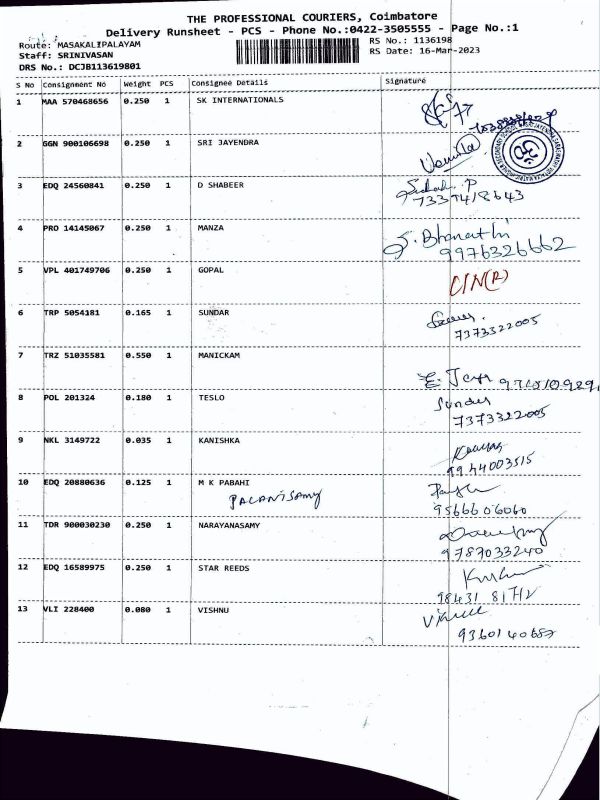 THE PROFESSIONAL COURIERS, Coimbatore
Delivery Runsheet - PCS - Phone No.:0422-3505555 - Page No.:1
Route: MASAKALIPALAYAM
RS No.: 1136198
Staff: SRINIVASAN
RS Date: 16-Mar-2023
DRS No.: DCJB113619801
S No Consignment No Weight PCS Consignee Details Signature
1 MAA 570468656 0.250 1 SK INTERNATIONALS
2 GGN 900106698 0.250 1 SRI JAYENDRA
3 EDQ 24560841 0.250 1 D SHABEER
4 PRO 14145067 0.250 1 MANZA S. Bharathi
9976326662
5 VPL 401749706 0.250 1 GOPAL C/N(R)
6 TRP 5054181 0.165 1 SUNDAR
7373322005
7 TRZ 51035581 0.550 1 MANICKAM
8 POL 201324 0.180 1 TESLO Sunder
7373322005
9 NKL 3149722 0.035 1 KANISHKA
9944003515
10 EDQ 20880636 0.125 1 M K PABAHI
PALANISAMY 9566606060
11 TDR 900030230 0.250 1 NARAYANASAMY
9787033240
12 EDQ 16589975 0.250 1 STAR REEDS
98431 81712
13 VLI 228400 0.080 1 VISHNU